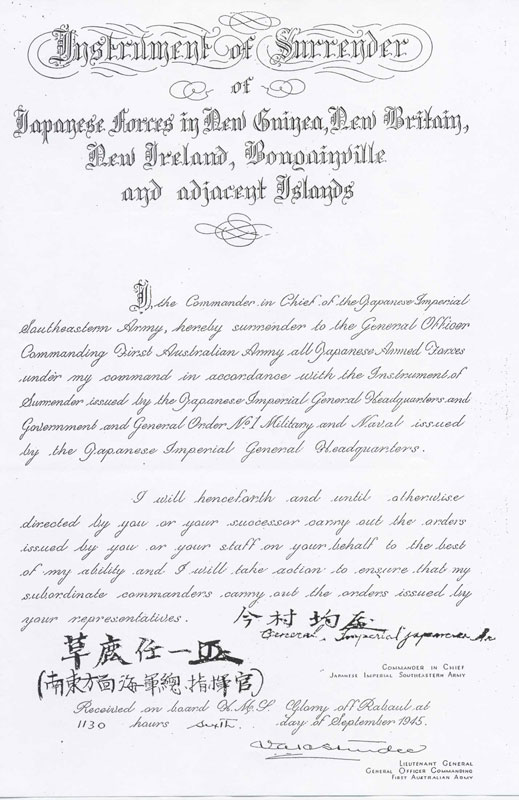 Instrument of Surrender
of
Japanese Forces in New Guinea, New Britain,
New Ireland, Bougainville
and adjacent Islands
I, the Commander in Chief of the Japanese Imperial
Southeastern Army, hereby surrender to the General Officer
Commanding First Australian Army all Japanese Armed Forces
under my command in accordance with the Instrument of
Surrender issued by the Japanese Imperial General Headquarters and
Government and General Order No 1 Military and Naval issued
by the Japanese Imperial General Headquarters.
I will henceforth and until otherwise
directed by you or your successor carry out the orders
issued by you or your staff on your behalf to the best
of my ability and I will take action to ensure that my
subordinate commanders carry out the orders issued by
your representatives.
今村均
General, Imperial Japanese
草鹿任一
COMMANDER IN CHIEF
JAPANESE IMPERIAL SOUTHEASTERN ARMY
(南東方面海軍總指揮官)
Received on board H.M.S. Glory off Rabaul at
1130 hours sixth day of September 1945.
LIEUTENANT GENERAL
GENERAL OFFICER COMMANDING
FIRST AUSTRALIAN ARMY